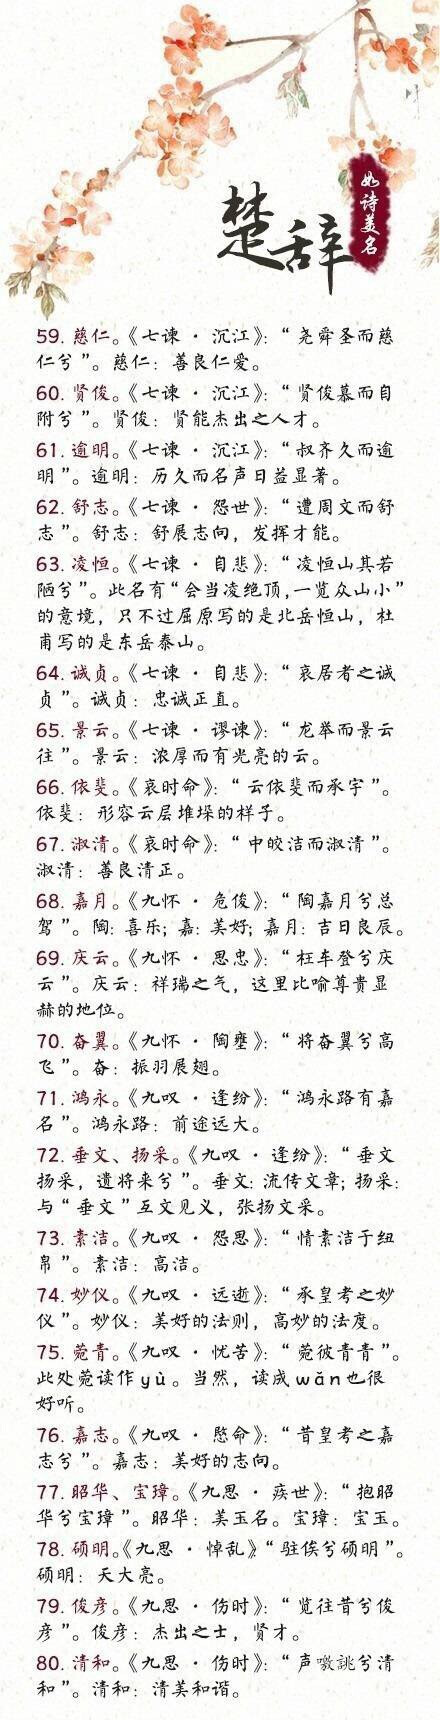 如诗美名
楚辞
59. 慈仁。《七谏 · 沉江》：“尧舜圣而慈
仁兮”。慈仁：善良仁爱。
60. 贤俊。《七谏 · 沉江》：“贤俊慕而自
附兮”。贤俊：贤能杰出之人才。
61. 逾明。《七谏 · 沉江》：“叔齐久而逾
明”。逾明：历久而名声日益显著。
62. 舒志。《七谏 · 怨世》：“遭周文而舒
志”。舒志：舒展志向，发挥才能。
63. 凌恒。《七谏 · 自悲》：“凌恒山其若
陋兮”。此名有“会当凌绝顶，一览众山小”
的意境，只不过屈原写的是北岳恒山，杜
甫写的是东岳泰山。
64. 诚贞。《七谏 · 自悲》：“哀居者之诚
贞”。诚贞：忠诚正直。
65. 景云。《七谏 · 谬谏》：“龙举而景云
往”。景云：浓厚而有光亮的云。
66. 依斐。《哀时命》：“云依斐而承宇”。
依斐：形容云层堆垛的样子。
67. 淑清。《哀时命》：“中皎洁而淑清”。
淑清：善良清正。
68. 嘉月。《九怀 · 危俊》：“陶嘉月兮总
驾”。陶：喜乐；嘉：美好；嘉月：吉日良辰。
69. 庆云。《九怀 · 思忠》：“枉车登兮庆
云”。庆云：祥瑞之气，这里比喻尊贵显
赫的地位。
70. 奋翼。《九怀 · 陶壅》：“将奋翼兮高
飞”。奋：振羽展翅。
71. 鸿永。《九叹 · 逢纷》：“鸿永路有嘉
名”。鸿永路：前途远大。
72. 垂文、扬采。《九叹 · 逢纷》：“垂文
扬采，遗将来兮”。垂文：流传文章；扬采：
与“垂文”互文见义，张扬文采。
73. 素洁。《九叹 · 怨思》：“情素洁于纽
帛”。素洁：高洁。
74. 妙仪。《九叹 · 远逝》：“承皇考之妙
仪”。妙仪：美好的法则，高妙的法度。
75. 菀青。《九叹 · 忧苦》：“菀彼青青”。
此处菀读作yù。当然，读成wǎn也很
好听。
76. 嘉志。《九叹 · 愍命》：“昔皇考之嘉
志兮”。嘉志：美好的志向。
77. 昭华、宝璋。《九思 · 疾世》：“抱昭
华兮宝璋”。昭华：美玉名。宝璋：宝玉。
78. 硕明。《九思 · 悼乱》：“驻俟兮硕明”。
硕明：天大亮。
79. 俊彦。《九思 · 伤时》：“览往昔兮俊
彦”。俊彦：杰出之士，贤才。
80. 清和。《九思 · 伤时》：“声噭誂兮清
和”。清和：清美和谐。